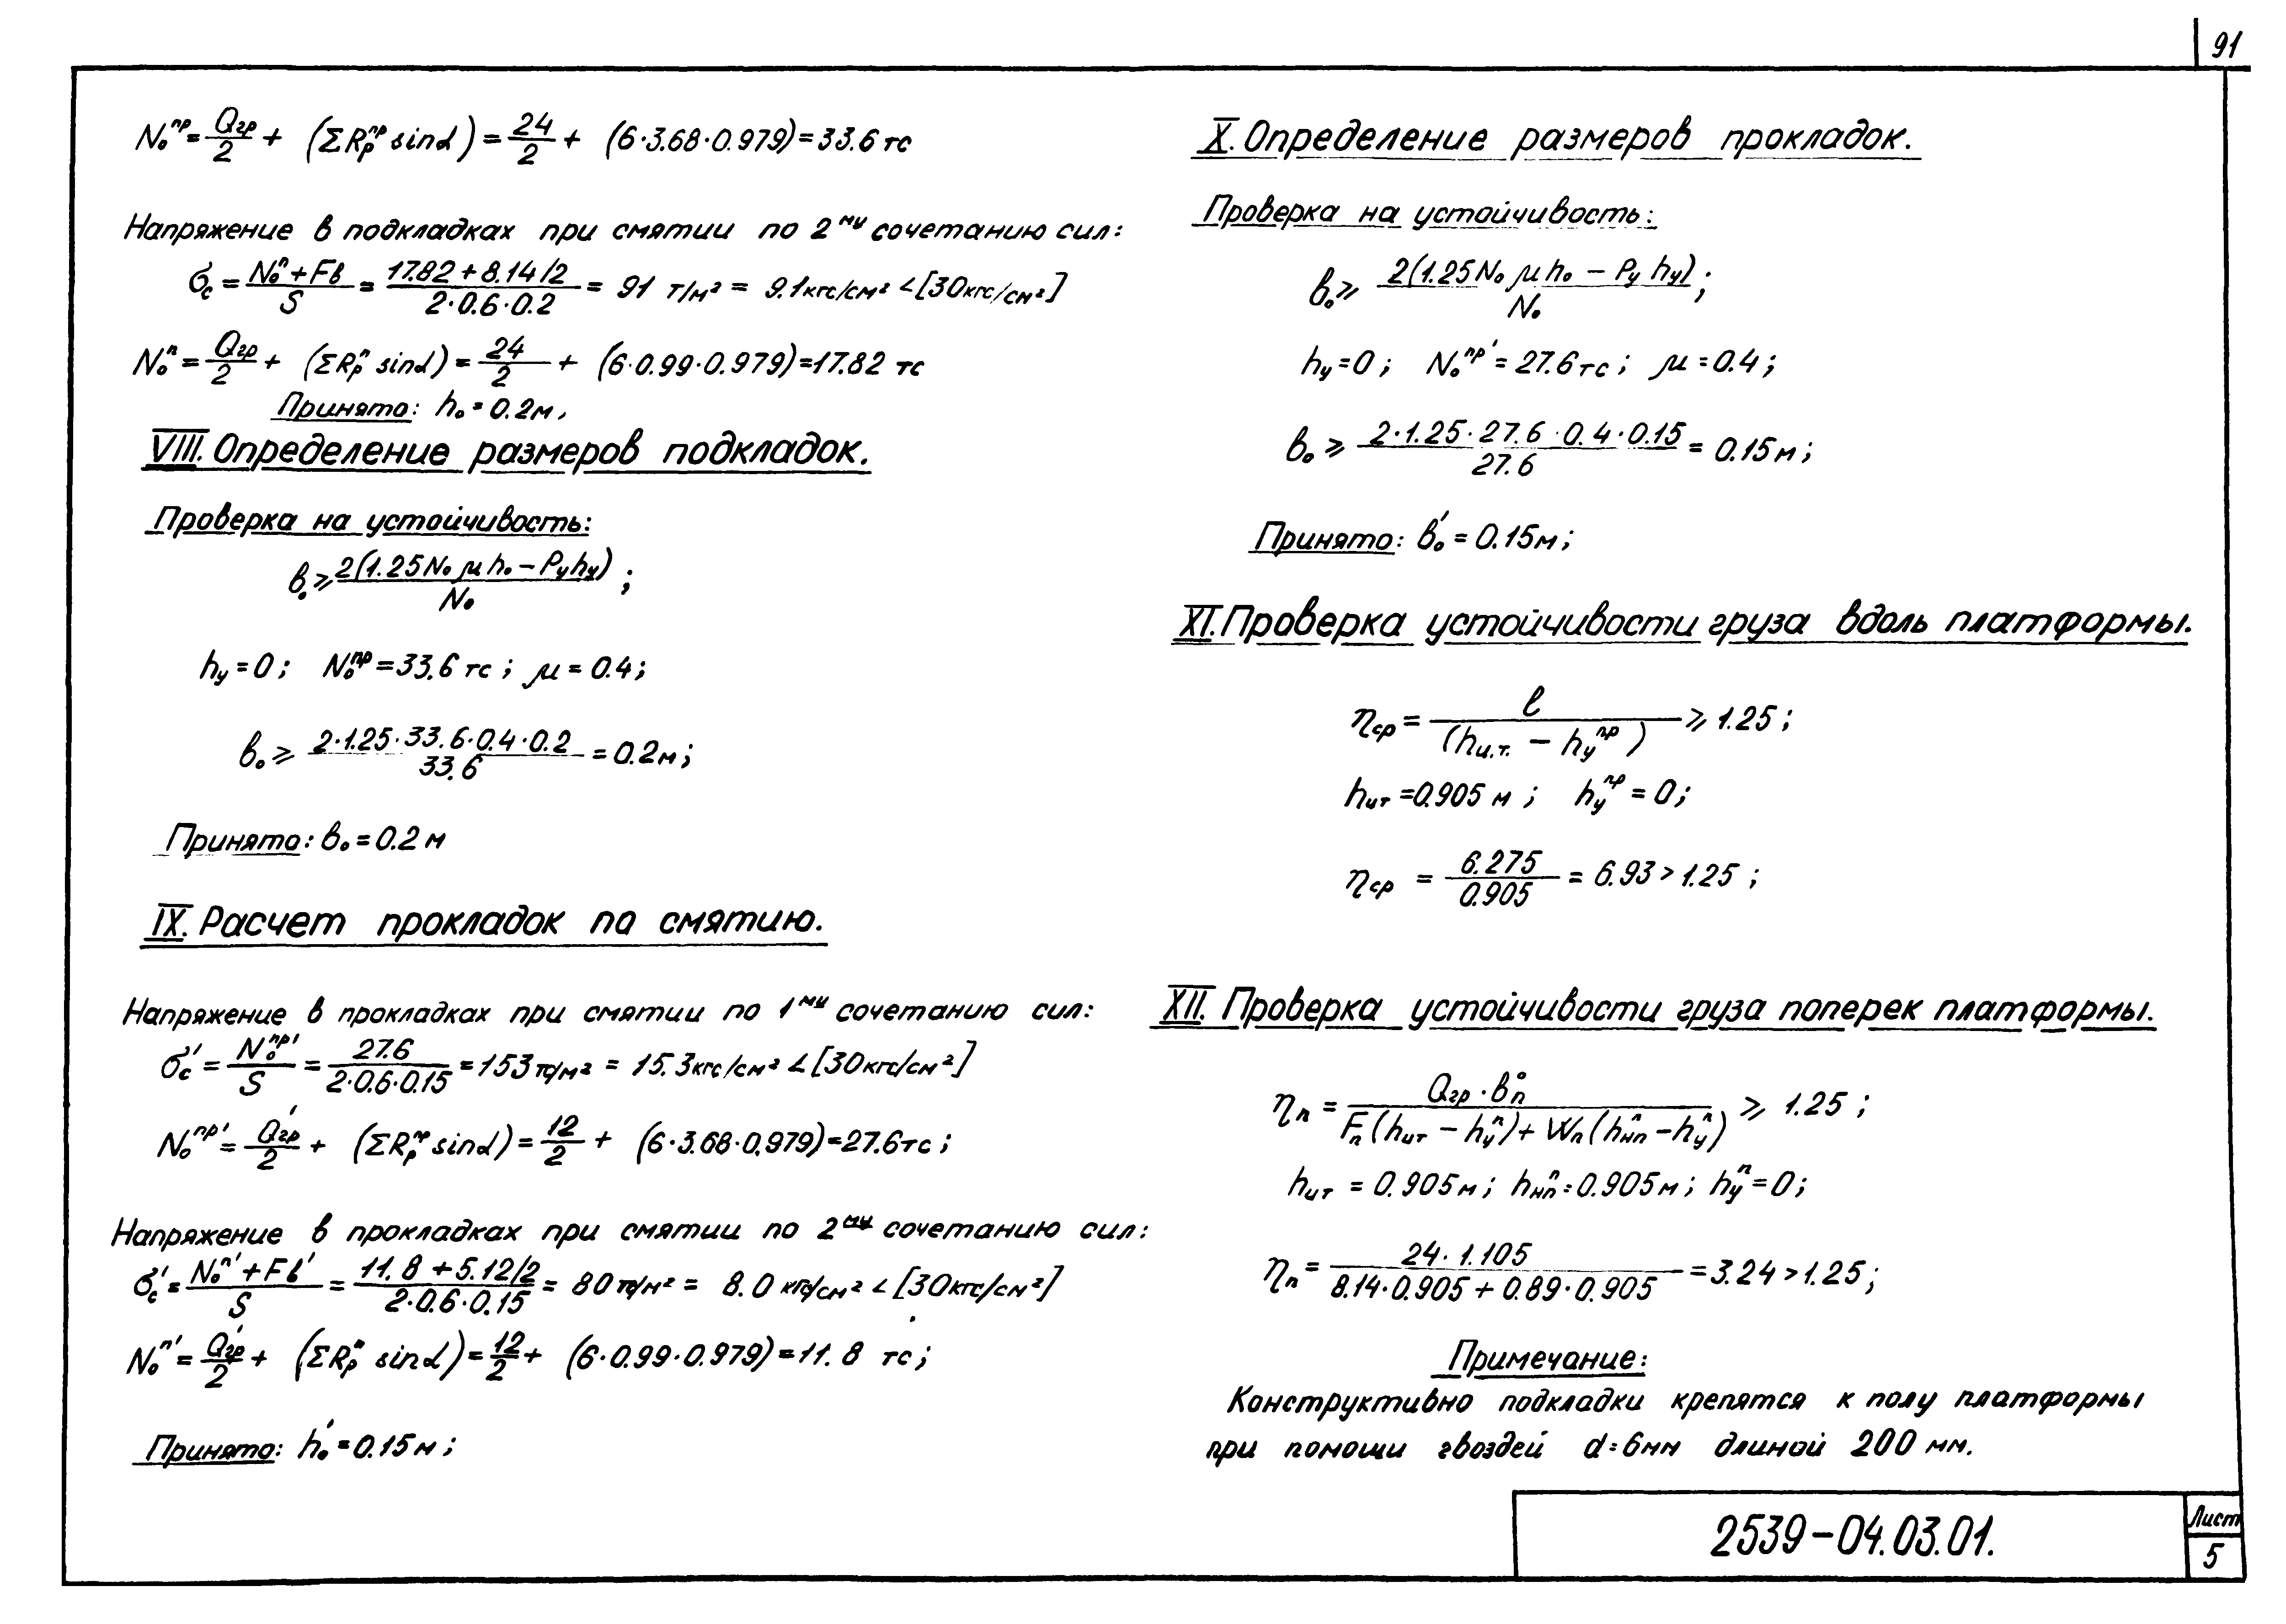 91
N₀ᵖᵖ = Qгр/2 + (ΣRрᵖᵖ sinα) = 24/2 + (6·3.68·0.979) = 33.6 тс
Напряжение в подкладках при смятии по 2ᵐᵘ сочетанию сил:
σc = (N₀ⁿ + Fв)/S = (17.82 + 8.14/2)/(2·0.6·0.2) = 91 т/м² = 9.1 кгс/см² < [30 кгс/см²]
N₀ⁿ = Qгр/2 + (ΣRрⁿ sinα) = 24/2 + (6·0.99·0.979) = 17.82 тс
Принято: h₀ = 0.2м,
VIII. Определение размеров подкладок.
Проверка на устойчивость:
в₀ ⩾ 2(1.25N₀ μ h₀ – Pу hу)/N₀ ;
hу = 0; N₀ᵖᵖ = 33.6 тс; μ = 0.4;
в₀ ⩾ 2·1.25·33.6·0.4·0.2/33.6 = 0.2м;
Принято: в₀ = 0.2 м
IX. Расчет прокладок по смятию.
Напряжение в прокладках при смятии по 1ᵐᵘ сочетанию сил:
σc' = N₀ᵖᵖ'/S = 27.6/(2·0.6·0.15) = 153 тс/м² = 15.3 кгс/см² < [30 кгс/см²]
N₀ᵖᵖ' = Qгр'/2 + (ΣRрᵖᵖ sinα) = 12/2 + (6·3.68·0.979) = 27.6 тс;
Напряжение в прокладках при смятии по 2ᵐᵘ сочетанию сил:
σc' = (N₀ⁿ' + Fв')/S = (11.8 + 5.12/2)/(2·0.6·0.15) = 80 тс/м² = 8.0 кгс/см² < [30 кгс/см²]
N₀ⁿ' = Qгр'/2 + (ΣRрⁿ sinα) = 12/2 + (6·0.99·0.979) = 11.8 тс;
Принято: h₀' = 0.15м;
X. Определение размеров прокладок.
Проверка на устойчивость:
в₀ ⩾ 2(1.25N₀ μ h₀ – Pу hу)/N₀ ;
hу = 0; N₀ᵖᵖ' = 27.6 тс; μ = 0.4;
в₀ ⩾ 2·1.25·27.6·0.4·0.15/27.6 = 0.15м;
Принято: в₀' = 0.15м;
XI. Проверка устойчивости груза вдоль платформы.
ηср = ℓ/(hц.т. – hуᵖᵖ) ⩾ 1.25;
hцт = 0.905 м; hуᵖᵖ = 0;
ηср = 6.275/0.905 = 6.93 > 1.25;
XII. Проверка устойчивости груза поперек платформы.
ηп = Qгр·вп°/(Fп(hцт – hуⁿ) + Wп(hнпⁿ – hуⁿ)) ⩾ 1.25;
hцт = 0.905м; hнпⁿ = 0.905м; hуⁿ = 0;
ηп = 24·1.105/(8.14·0.905 + 0.89·0.905) = 3.24 > 1.25;
Примечание:
Конструктивно подкладки крепятся к полу платформы
при помощи гвоздей d=6мм длиной 200 мм.
2539–04.03.01.
Лист
5